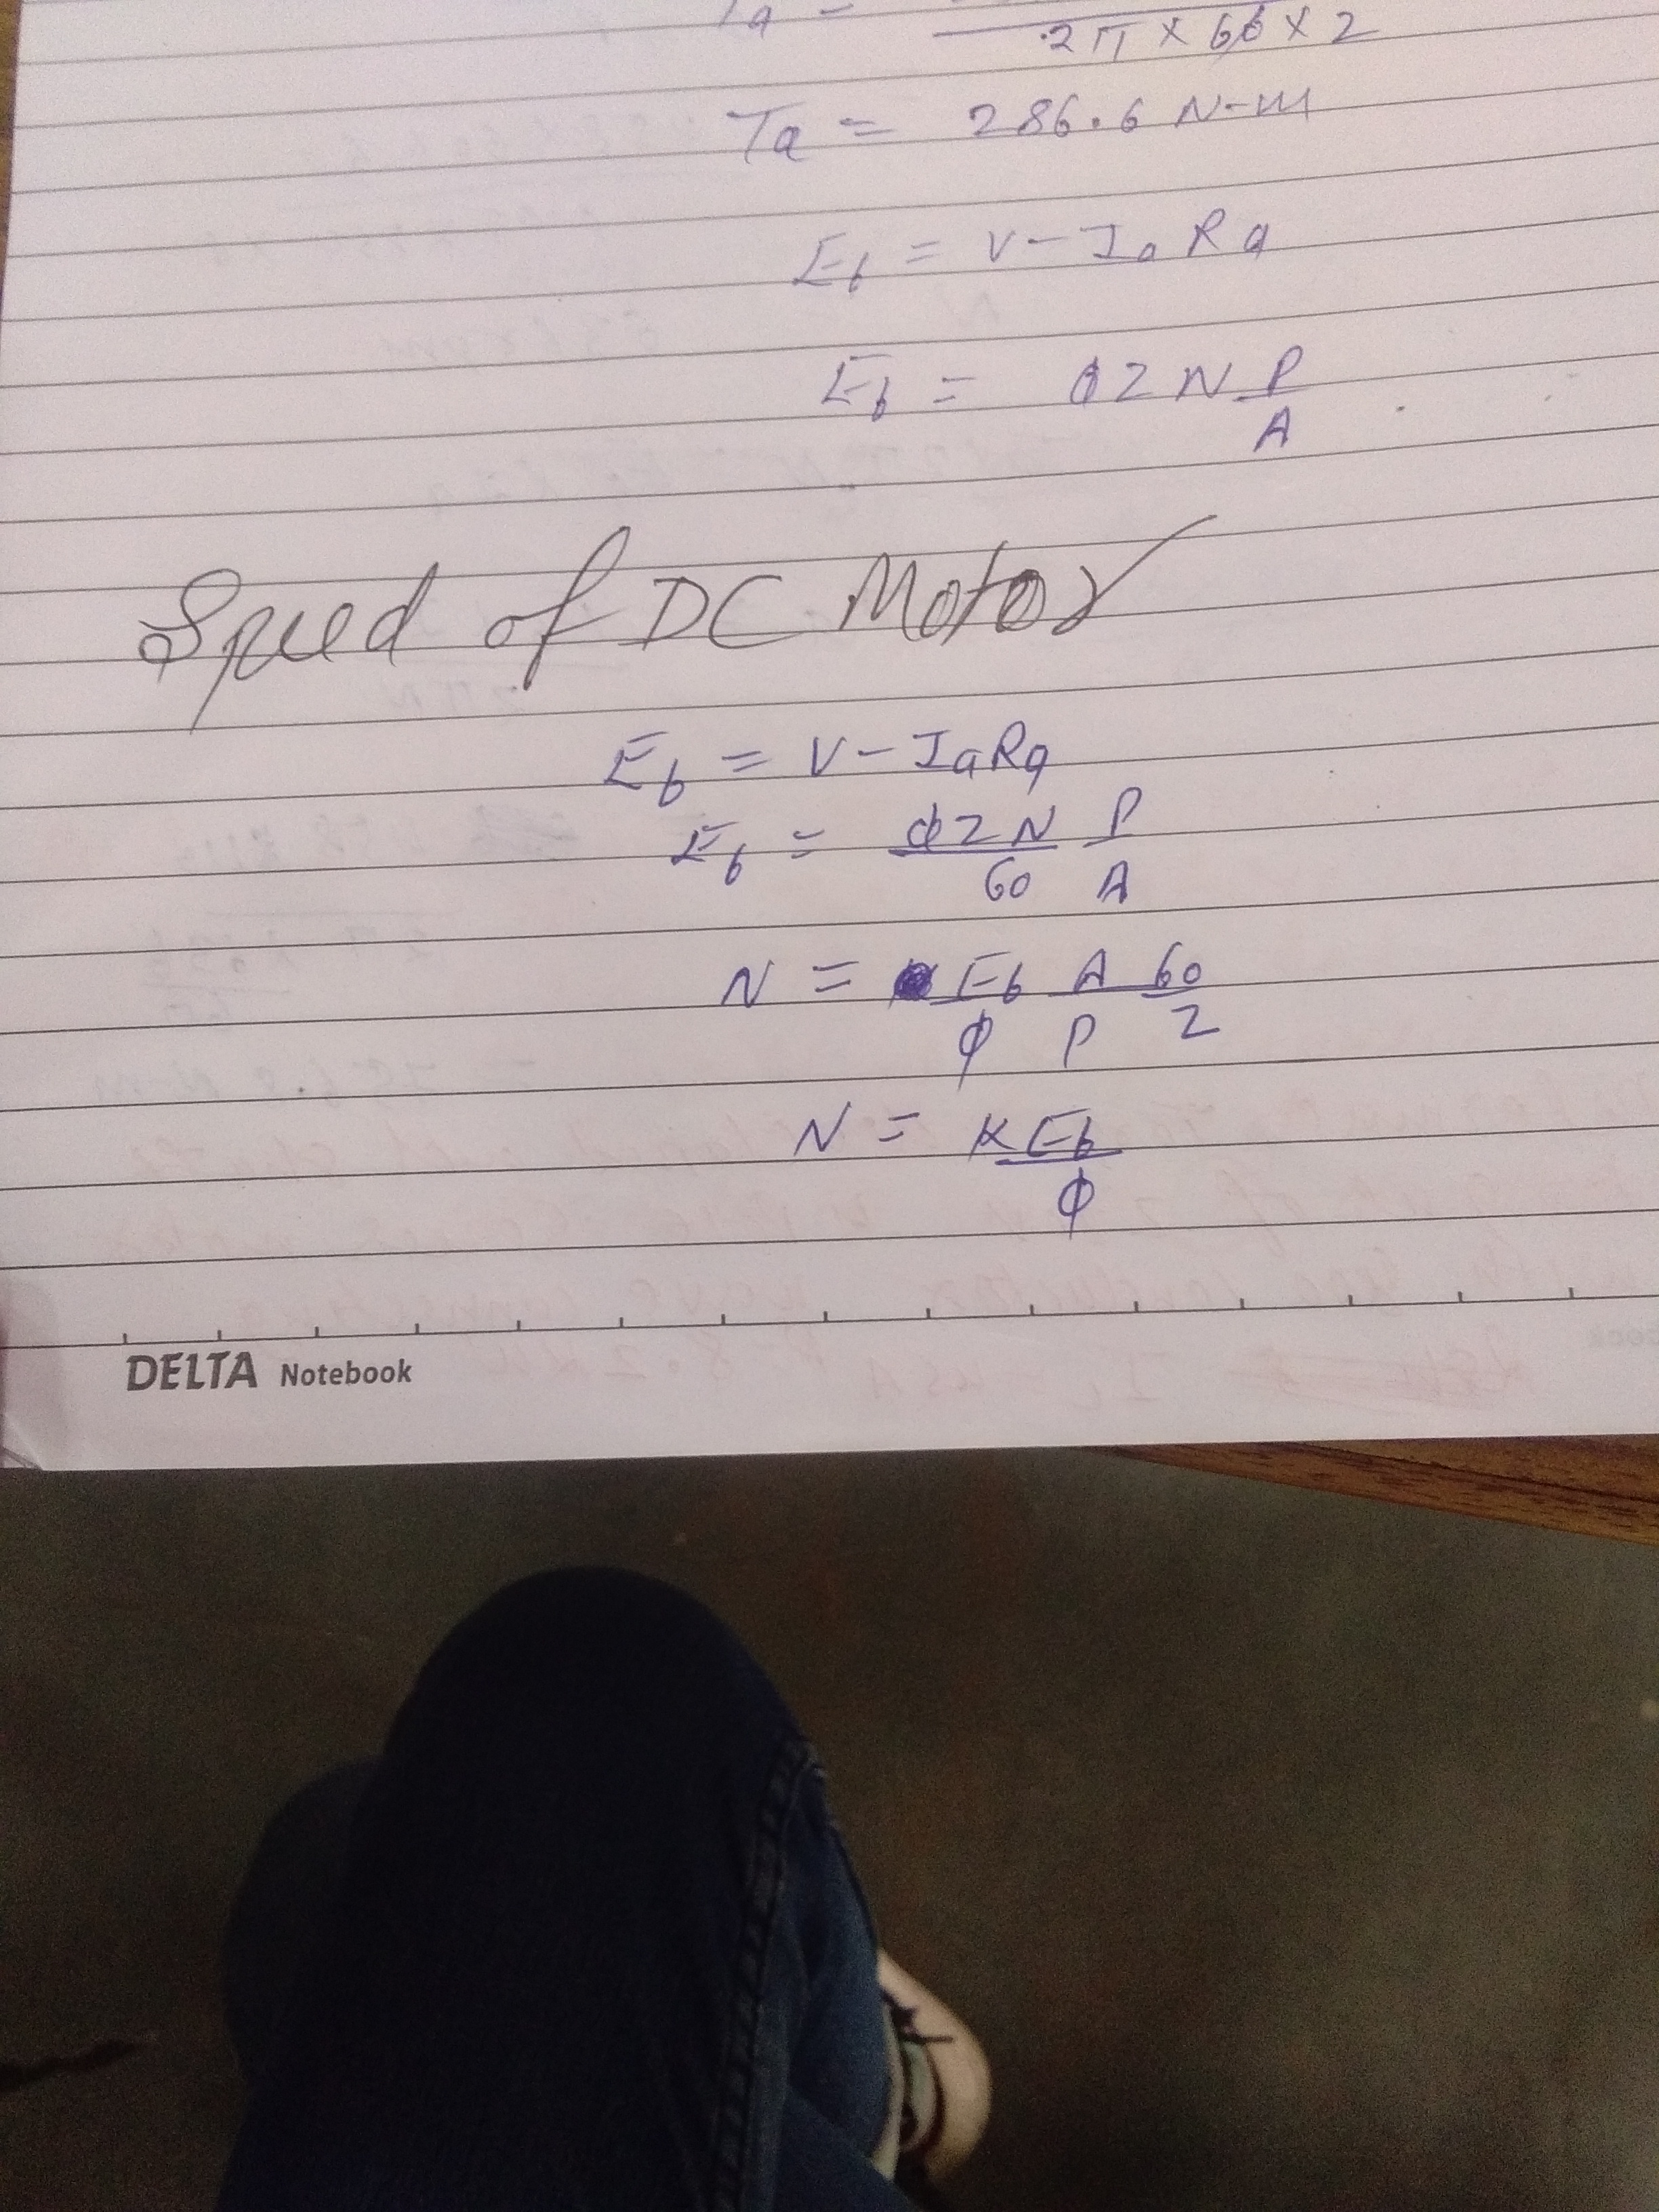 Ta =
2π × 60 × 2
Ta = 286.6 N-m
Eb = V - Ia Ra
Eb = ϕZN P/A
Speed of DC Motor
Eb = V - IaRa
Eb = ϕZN/60 P/A
N = Eb/ϕ A/P 60/Z
N = KEb/ϕ
DELTA Notebook